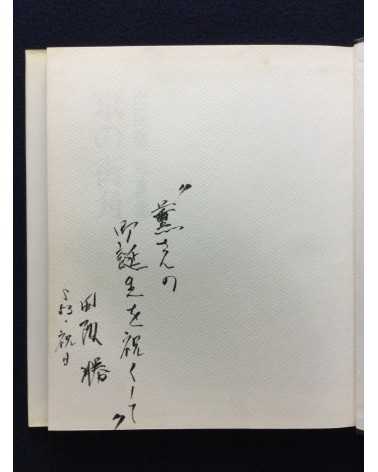 〝薫さんの
御誕生を祝して〟
田阪 勝
S53・祝日